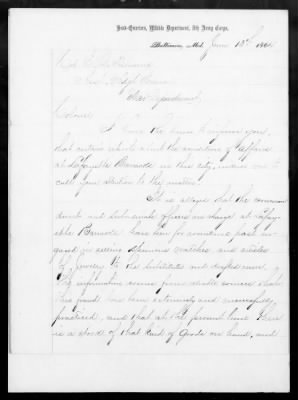 Head-Quarters, Middle Department, 8th Army Corps.
Baltimore, Md., June 10th 1864
Col
War Department
Colonel
I have the honor to inform you,
that certain reports about the conditions of affairs
at Lafayette Barracks in this city, induce me to
call your attention to the matter.
It is alleged that the command-
ant and subordinate officers in charge at Lafay-
ette Barracks have been for sometime past en-
gaged in selling spurious watches and articles
of Jewelry to the substitutes and drafted men.
The information comes from reliable sources that
this fraud has been extensively and successfully
practiced, and that at the present time there
is a stock of that kind of goods on hand, and